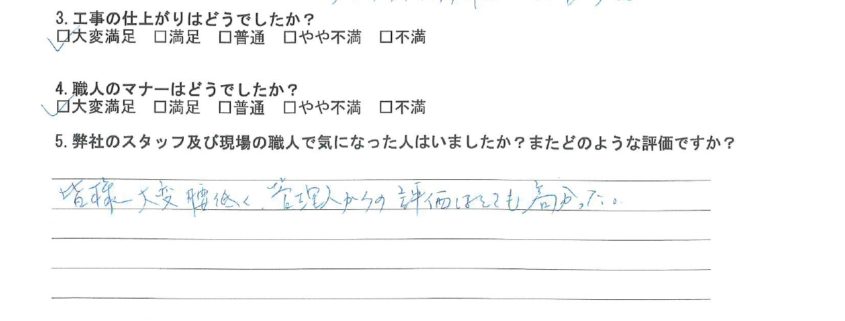 3. 工事の仕上がりはどうでしたか？
☑大変満足 □満足 □普通 □やや不満 □不満
4. 職人のマナーはどうでしたか？
☑大変満足 □満足 □普通 □やや不満 □不満
5. 弊社のスタッフ及び現場の職人で気になった人はいましたか？またどのような評価ですか？
皆様大変腰低く、管理人からの評価はとても高かった。